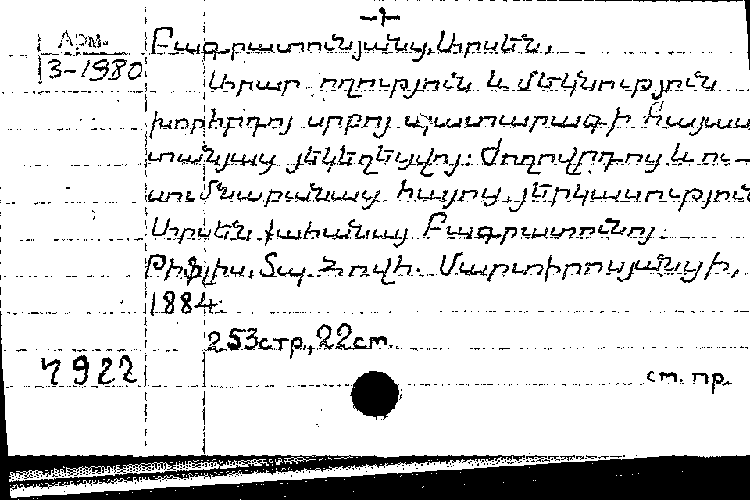 Арм.
3-1980
Բագրատունյանց, Արսեն.
Արար ողություն և մեկնություն
խորհրդոյ սրբոյ պատարագի Հայաս-
տանյայց յեկեղեցվոյ: Ժողովրդոց և ու-
սումնարանաց հայոց, յերկասություն
Արսեն քահանայ Բագրատունոյ.
Թիֆլիս, Տպ. Հովհ. Մարտիրոսյանցի,
1884.
253стр., 22см.
4922
ст. пр.